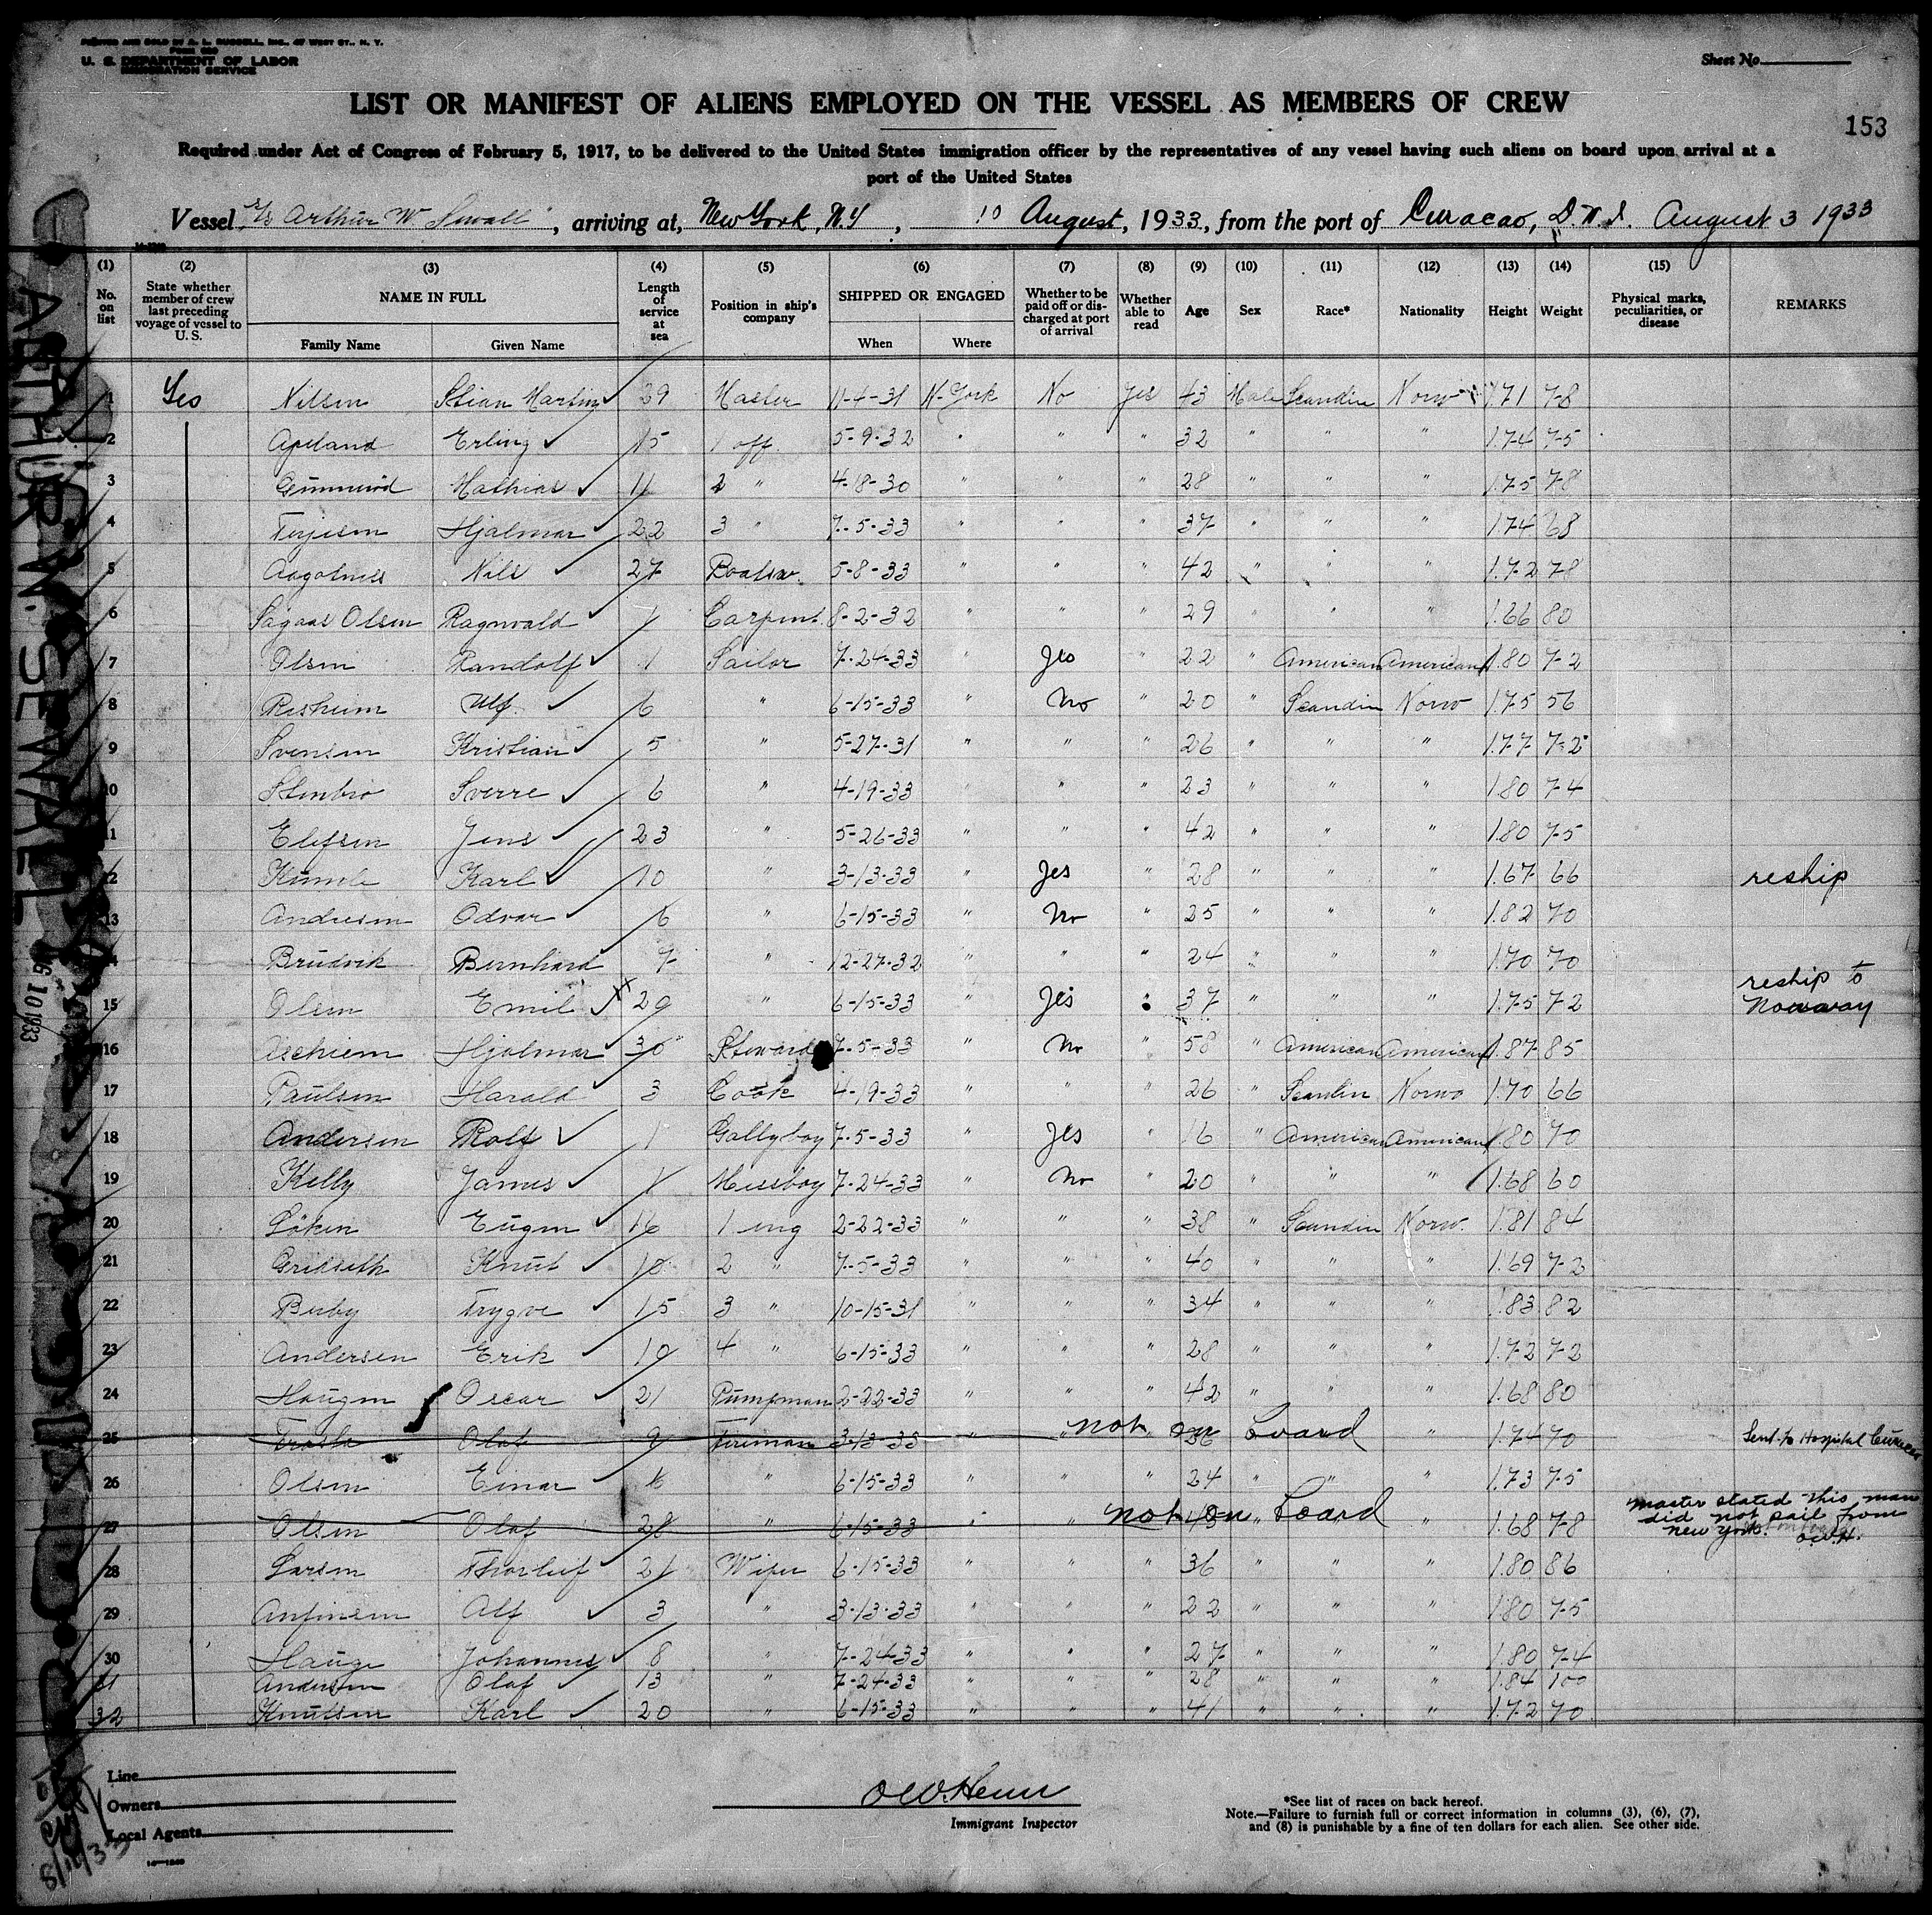 PRINTED AND SOLD BY A. L. RUSSELL, INC., 47 WEST ST., N. Y.
U. S. DEPARTMENT OF LABOR
IMMIGRATION SERVICE
Sheet No.
LIST OR MANIFEST OF ALIENS EMPLOYED ON THE VESSEL AS MEMBERS OF CREW
153
Required under Act of Congress of February 5, 1917, to be delivered to the United States immigration officer by the representatives of any vessel having such aliens on board upon arrival at a
port of the United States
Vessel "Arthur W. Sewall", arriving at, New York, N.Y, 10 August, 1933, from the port of Curacao, D.W.I. August 3 1933
(1) No. on list (2) State whether member of crew last preceding voyage of vessel to U. S. (3) NAME IN FULL Family Name Given Name (4) Length of service at sea (5) Position in ship's company (6) SHIPPED OR ENGAGED When Where (7) Whether to be paid off or discharged at port of arrival (8) Whether able to read (9) Age (10) Sex (11) Race* (12) Nationality (13) Height (14) Weight (15) Physical marks, peculiarities, or disease REMARKS
1 Yes Nilsen Stian Martin 29 Master 11-4-31 N-York No Yes 43 Male Scandin Norw 1.71 78
2 Apeland Erling 15 1 off 5-9-32 " " " 32 " " " 1.74 75
3 Mathias 11 2 " 4-18-30 " " " 28 " " " 1.75 78
4 Terjesen Hjalmar 22 3 " 7-5-33 " " " 37 " " " 1.74 68
5 Aagotnes Nils 27 Boatsw. 5-8-33 " " " 42 " " " 1.72 78
6 Olsen Ragnvald 1 Carpent. 8-2-32 " " " 29 " " " 1.66 80
7 Olsen Randolf 1 Sailor 7-24-33 " Yes " 22 " American American 1.80 72
8 Risheim Ulf 6 " 6-15-33 " No " 20 " Scandin Norw 1.75 56
9 Svensen Kristian 5 " 5-27-31 " " " 26 " " " 1.77 72
10 Stenbro Sverre 6 " 4-19-33 " " 23 " " " 1.80 74
11 Elefsen Jens 23 " 5-26-33 " " " 42 " " " 1.80 75
12 Karl 10 " 3-13-33 " Yes " 28 " " " 1.67 66 reship
13 Andresen Odvar 6 " 6-15-33 " No " 25 " " " 1.82 70
14 Brudvik Bernhard 7 " 12-27-32 " " " 24 " " " 1.70 70
15 Olsen Emil 29 " 6-15-33 Yes " 37 " " " 1.75 72 reship to Norway
16 Hjalmar 30 Steward 7-5-33 " No " 58 " American American 1.87 85
17 Paulsen Harald 3 Cook 4-19-33 " " " 26 " Scandin Norw 1.70 66
18 Andersen Rolf 1 Gallyboy 7-5-33 " Yes " 16 " American American 1.80 70
19 Kelly James 1 Messboy 7-24-33 " No " 20 " " " 1.68 60
20 Löken Eugen 16 1 eng 2-22-33 " " " 38 " Scandin Norw. 1.81 84
21 Grikseth Knut 10 2 " 7-5-33 " " " 40 " " " 1.69 72
22 Buby Trygve 15 3 " 10-15-31 " " " 34 " " " 1.83 82
23 Andersen Erik 10 4 " 6-15-33 " " " 28 " " " 1.72 72
24 Haugen Oscar 21 Pumpman 2-22-33 " " " 42 " " " 1.68 80
25 Olaf 9 Fireman 3-13-33 " not on board 1.74 70 Sent to Hospital Curacao
26 Olsen Einar 6 " 6-15-33 " " " 24 " " " 1.73 75
27 Olsen Olaf 28 " 6-15-33 " not on board " 1.68 78 master stated this man did not sail from new york. O.W.H.
28 Larsen Thorleif 21 Wiper 6-15-33 " " " 36 " " " 1.80 86
29 Anfinsen Alf 3 " 3-13-33 " " " 22 " " " 1.80 75
30 Hauge Johannes 8 " 7-24-33 " " " 27 " " " 1.80 74
31 Andersen Olaf 13 " 7-24-33 " " " 28 " " " 1.84 100
32 Knutsen Karl 20 " 6-15-33 " " " 41 " " " 1.72 70
Line
Owners
Local Agents
Immigrant Inspector
*See list of races on back hereof.
Note.—Failure to furnish full or correct information in columns (3), (6), (7),
and (8) is punishable by a fine of ten dollars for each alien. See other side.
ARTHUR W. SEWALL
10 1933